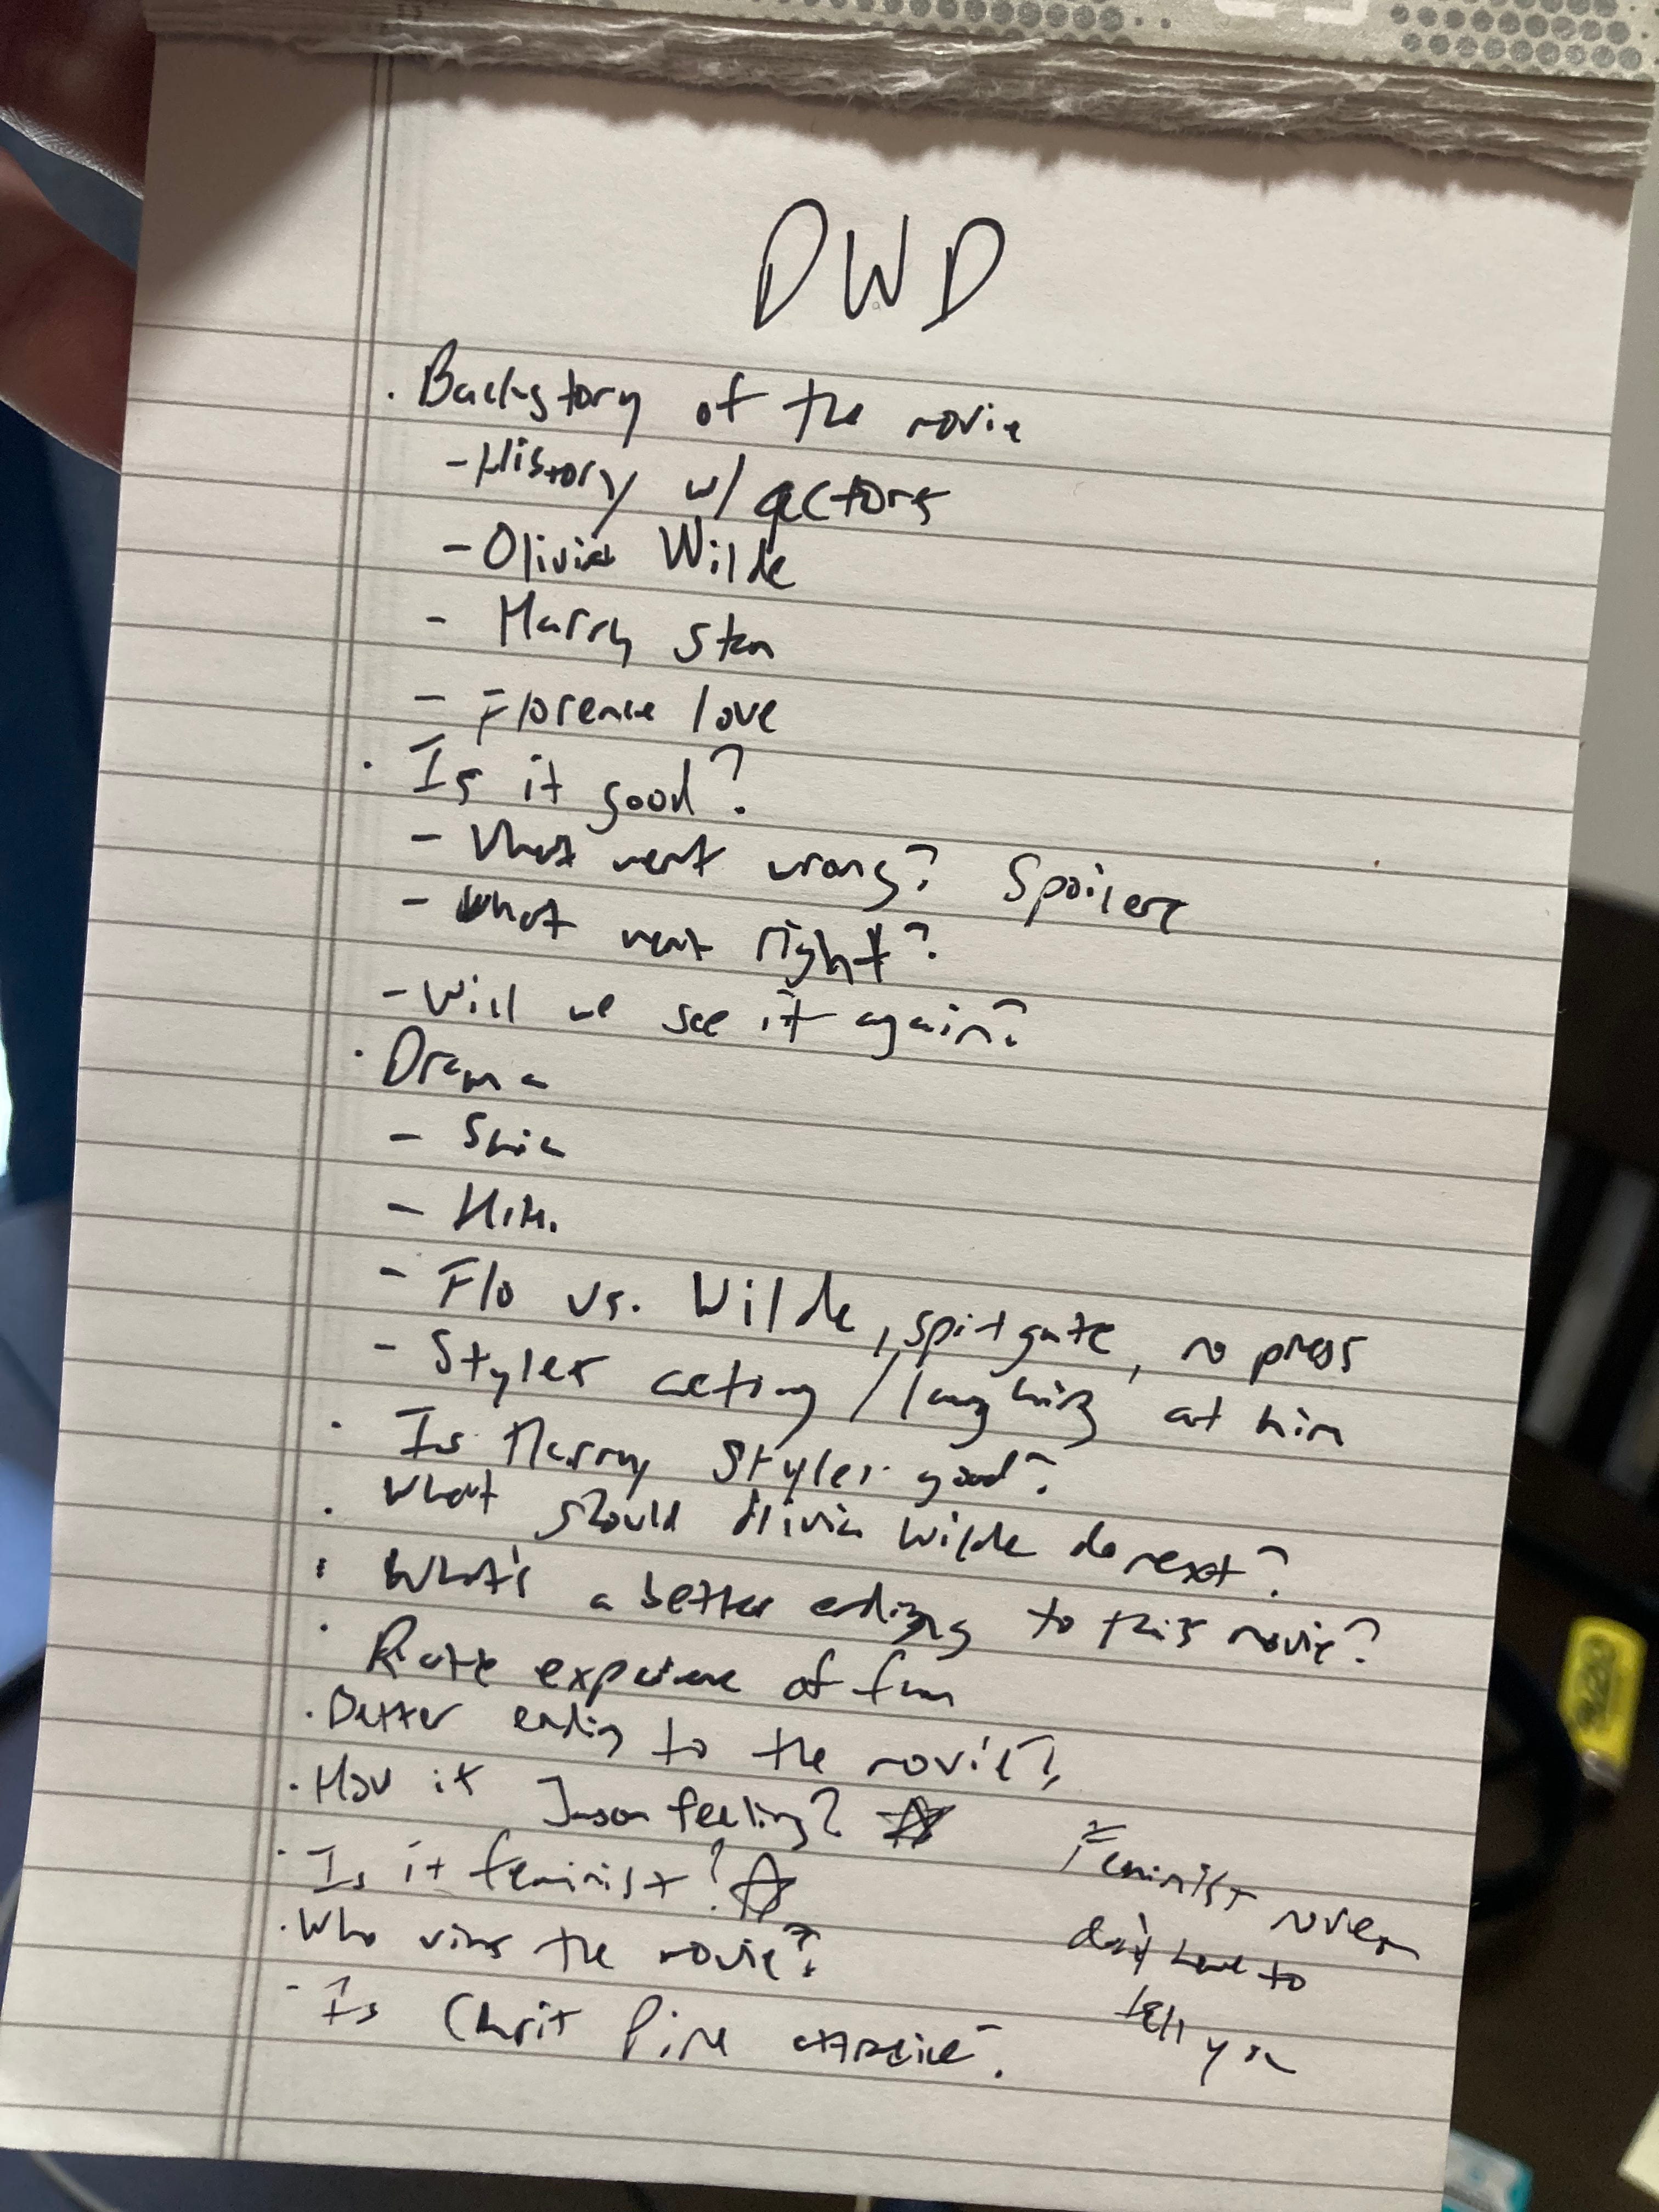 DWD
. Backstory of the movie
- History w/ actors
- Olivia Wilde
- Harry Stan
- Florence love
. Is it good?
- What went wrong? Spoilers
- What went right?
- Will we see it again?
. Drama
- Shia
- Him.
- Flo vs. Wilde, spitgate, no press
- Styles acting / laughing at him
. Is Harry Styles good?
. What should Olivia Wilde do next?
. What's a better ending to this movie?
. Rate experience of fun
. Better ending to the movie?
. How is Jason feeling?
. Is it feminist?
. Who wins the movie?
- Is Chris Pine attractive?
Feminist movies
don't have to
tell you